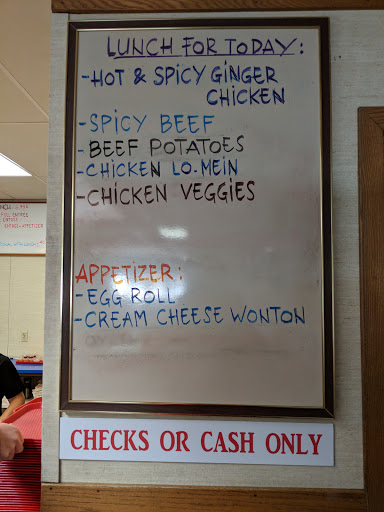 LUNCH FOR TODAY:
-HOT & SPICY GINGER
CHICKEN
-SPICY BEEF
-BEEF POTATOES
-CHICKEN LO-MEIN
-CHICKEN VEGGIES
APPETIZER:
-EGG ROLL
-CREAM CHEESE WONTON
CHECKS OR CASH ONLY